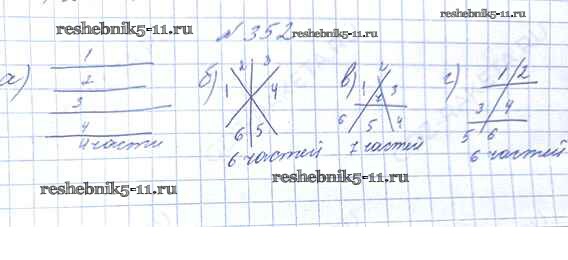 reshebnik5-11.ru
№352
reshebnik5-11.ru
а) 1 2 3 4
4 части
б) 1 2 3 4 5 6
6 частей
в) 1 2 3 4 5 6 7
7 частей
г) 1 2 3 4 5 6
6 частей
reshebnik5-11.ru
reshebnik5-11.ru